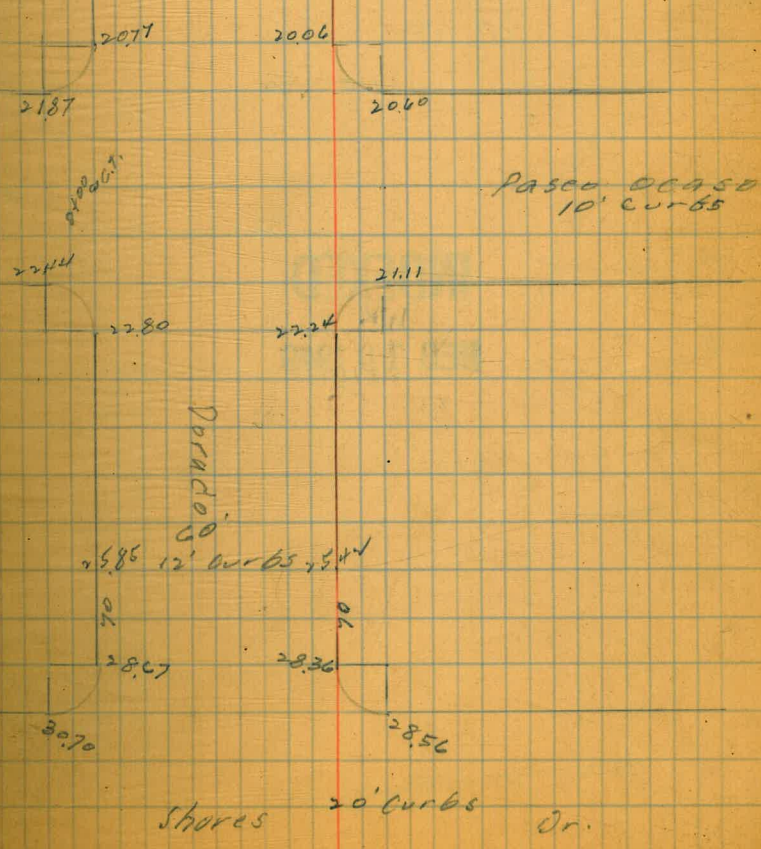 20.77 20.06
21.87 20.60
Paseo Ocaso
10' Curbs
22.44 21.11
22.80 22.24
Dorado
60'
25.85 12' Curbs 25.42
70 70
28.67 28.36
30.70 28.56
20' Curbs
Shores Dr.